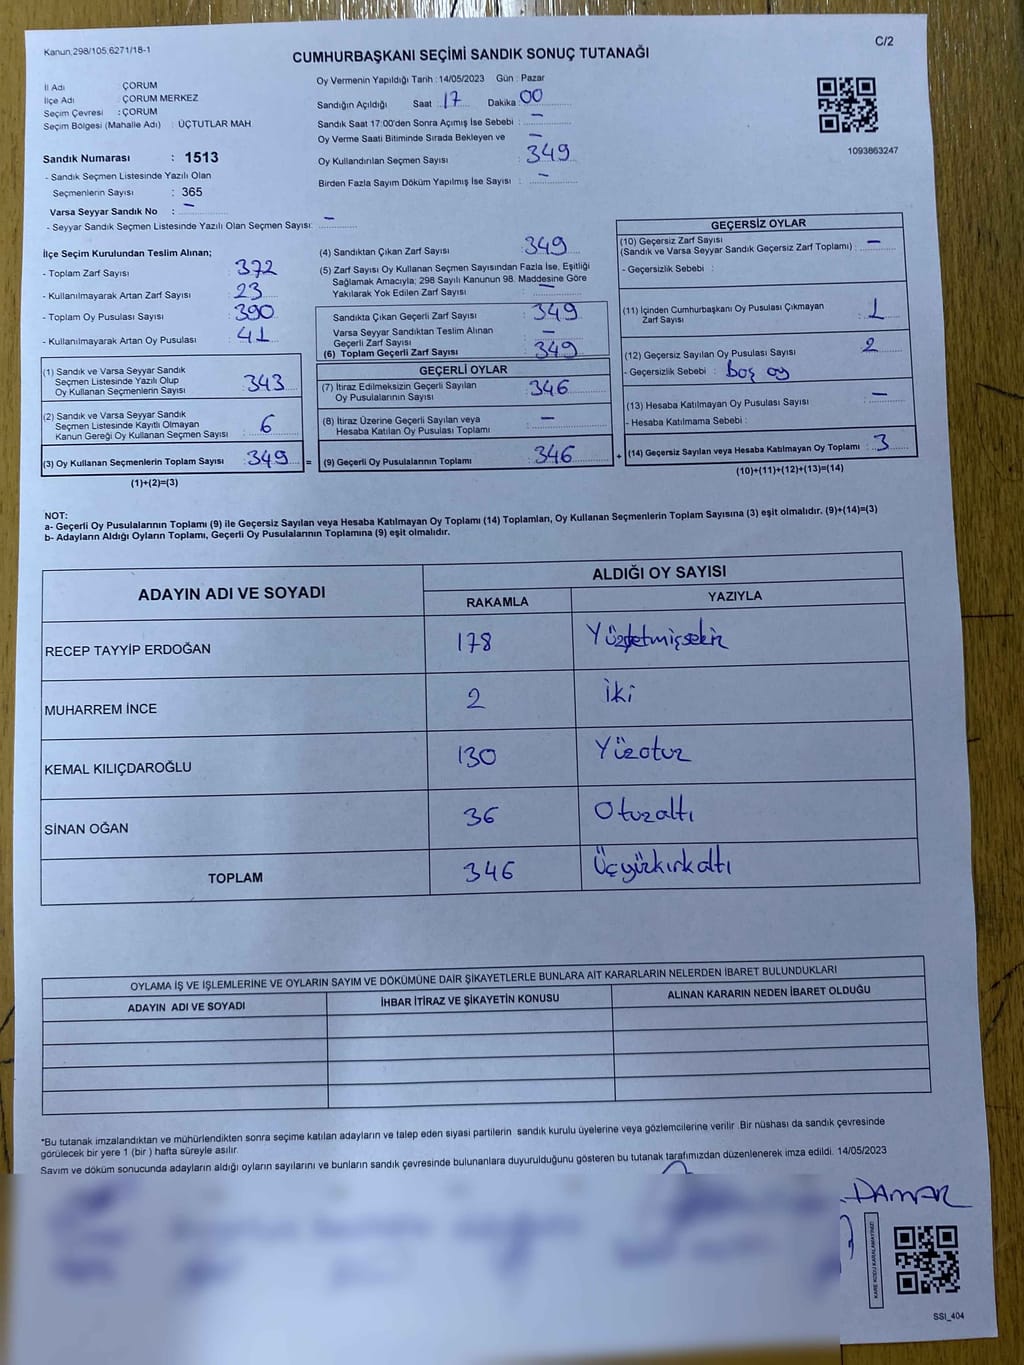 Kanun,298/105,6271/18-1
C/2
CUMHURBAŞKANI SEÇİMİ SANDIK SONUÇ TUTANAĞI
İl Adı : ÇORUM
İlçe Adı : ÇORUM MERKEZ
Seçim Çevresi : ÇORUM
Seçim Bölgesi (Mahalle Adı) : ÜÇTUTLAR MAH.
Sandık Numarası : 1513
- Sandık Seçmen Listesinde Yazılı Olan
Seçmenlerin Sayısı : 365
Varsa Seyyar Sandık No : –
- Seyyar Sandık Seçmen Listesinde Yazılı Olan Seçmen Sayısı: –
Oy Vermenin Yapıldığı Tarih : 14/05/2023 Gün : Pazar
Sandığın Açıldığı Saat 17 Dakika 00
Sandık Saat 17:00'den Sonra Açımış İse Sebebi : –
Oy Verme Saati Bitiminde Sırada Bekleyen ve –
Oy Kullandırılan Seçmen Sayısı : 349
Birden Fazla Sayım Döküm Yapılmış İse Sayısı : –
1093863247
İlçe Seçim Kurulundan Teslim Alınan;
- Toplam Zarf Sayısı : 372
- Kullanılmayarak Artan Zarf Sayısı : 23
- Toplam Oy Pusulası Sayısı : 390
- Kullanılmayarak Artan Oy Pusulası : 41
(1) Sandık ve Varsa Seyyar Sandık
Seçmen Listesinde Yazılı Olup
Oy Kullanan Seçmenlerin Sayısı : 343
(2) Sandık ve Varsa Seyyar Sandık
Seçmen Listesinde Kayıtlı Olmayan
Kanun Gereği Oy Kullanan Seçmen Sayısı : 6
(3) Oy Kullanan Seçmenlerin Toplam Sayısı : 349 =
(1)+(2)=(3)
(4) Sandıktan Çıkan Zarf Sayısı : 349
(5) Zarf Sayısı Oy Kullanan Seçmen Sayısından Fazla İse, Eşitliği
Sağlamak Amacıyla; 298 Sayılı Kanunun 98. Maddesine Göre
Yakılarak Yok Edilen Zarf Sayısı : –
Sandıkta Çıkan Geçerli Zarf Sayısı : 349
Varsa Seyyar Sandıktan Teslim Alınan
Geçerli Zarf Sayısı : –
(6) Toplam Geçerli Zarf Sayısı : 349
GEÇERLİ OYLAR
(7) İtiraz Edilmeksizin Geçerli Sayılan
Oy Pusulalarının Sayısı : 346
(8) İtiraz Üzerine Geçerli Sayılan veya
Hesaba Katılan Oy Pusulası Toplamı : –
(9) Geçerli Oy Pusulalarının Toplamı : 346 +
GEÇERSİZ OYLAR
(10) Geçersiz Zarf Sayısı
(Sandık ve Varsa Seyyar Sandık Geçersiz Zarf Toplamı) : –
- Geçersizlik Sebebi :
(11) İçinden Cumhurbaşkanı Oy Pusulası Çıkmayan
Zarf Sayısı : 1
(12) Geçersiz Sayılan Oy Pusulası Sayısı : 2
- Geçersizlik Sebebi : boş oy
(13) Hesaba Katılmayan Oy Pusulası Sayısı : –
- Hesaba Katılmama Sebebi :
(14) Geçersiz Sayılan veya Hesaba Katılmayan Oy Toplamı : 3
(10)+(11)+(12)+(13)=(14)
NOT:
a- Geçerli Oy Pusulalarının Toplamı (9) ile Geçersiz Sayılan veya Hesaba Katılmayan Oy Toplamı (14) Toplamları, Oy Kullanan Seçmenlerin Toplam Sayısına (3) eşit olmalıdır. (9)+(14)=(3)
b- Adayların Aldığı Oyların Toplamı, Geçerli Oy Pusulalarının Toplamına (9) eşit olmalıdır.
ADAYIN ADI VE SOYADI
ALDIĞI OY SAYISI
RAKAMLA YAZIYLA
RECEP TAYYİP ERDOĞAN 178 Yüzyetmişsekiz
MUHARREM İNCE 2 İki
KEMAL KILIÇDAROĞLU 130 Yüzotuz
SİNAN OĞAN 36 Otuzaltı
TOPLAM 346 Üçyüzkırkaltı
OYLAMA İŞ VE İŞLEMLERİNE VE OYLARIN SAYIM VE DÖKÜMÜNE DAİR ŞİKAYETLERLE BUNLARA AİT KARARLARIN NELERDEN İBARET BULUNDUKLARI
ADAYIN ADI VE SOYADI İHBAR İTİRAZ VE ŞİKAYETİN KONUSU ALINAN KARARIN NEDEN İBARET OLDUĞU
*Bu tutanak imzalandıktan ve mühürlendikten sonra seçime katılan adayların ve talep eden siyasi partilerin sandık kurulu üyelerine veya gözlemcilerine verilir .Bir nüshası da sandık çevresinde
görülecek bir yere 1 (bir ) hafta süreyle asılır.
Sayım ve döküm sonucunda adayların aldığı oyların sayılarını ve bunların sandık çevresinde bulunanlara duyurulduğunu gösteren bu tutanak tarafımızdan düzenlenerek imza edildi. 14/05/2023
DAMAR
KARE KODU KARALAMAYINIZ!
SSI_404